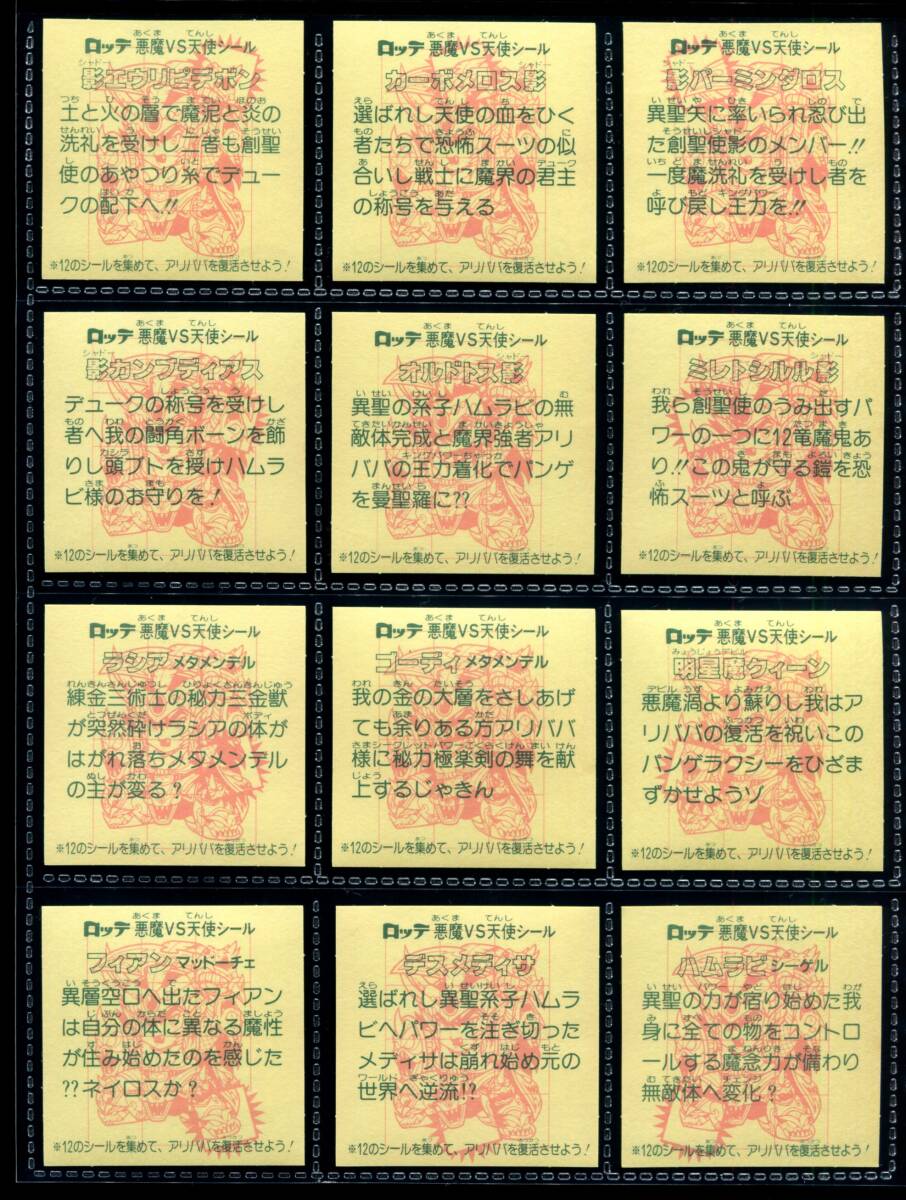 ロッテ 悪魔VS天使シール
影エウリピデポン
土と火の層で魔泥と炎の
洗礼を受けし二者も創聖
使のあやつり糸でデュー
クの配下へ!!
※12のシールを集めて、アリババを復活させよう!
ロッテ 悪魔VS天使シール
カーボメロス影
選ばれし天使の血をひく
者たちで恐怖スーツの似
合いし戦士に魔界の君主
の称号を与える
※12のシールを集めて、アリババを復活させよう!
ロッテ 悪魔VS天使シール
影バーミンダロス
異聖矢に率いられ忍び出
た創聖使影のメンバー!!
一度魔洗礼を受けし者を
呼び戻し王力を!!
※12のシールを集めて、アリババを復活させよう!
ロッテ 悪魔VS天使シール
影カンブディアス
デュークの称号を受けし
者へ我の闘角ボーンを飾
りし頭ブトを授けハムラ
ビ様のお守りを!
※12のシールを集めて、アリババを復活させよう!
ロッテ 悪魔VS天使シール
オルドトス影
異聖の系子ハムラビの無
敵体完成と魔界強者アリ
ババの王力着化でパンゲ
を曼聖羅に??
※12のシールを集めて、アリババを復活させよう!
ロッテ 悪魔VS天使シール
ミレトシルル影
我ら創聖使のうみ出すパ
ワーの一つに12竜魔鬼あ
り!!この鬼が守る鎧を恐
怖スーツと呼ぶ
※12のシールを集めて、アリババを復活させよう!
ロッテ 悪魔VS天使シール
ラシア メタメンデル
練金三術士の秘力三金獣
が突然砕けラシアの体が
はがれ落ちメタメンデル
の主が変る?
※12のシールを集めて、アリババを復活させよう!
ロッテ 悪魔VS天使シール
ゴーディ メタメンデル
我の金の大層をさしあげ
ても余りある方アリババ
様に秘力極楽剣の舞を献
上するじゃきん
※12のシールを集めて、アリババを復活させよう!
ロッテ 悪魔VS天使シール
明星魔クィーン
悪魔渦より蘇りし我はア
リババの復活を祝いこの
パンゲラクシーをひざま
ずかせようゾ
※12のシールを集めて、アリババを復活させよう!
ロッテ 悪魔VS天使シール
フィアン マッドーチェ
異層空口へ出たフィアン
は自分の体に異なる魔性
が住み始めたのを感じた
??ネイロスか?
※12のシールを集めて、アリババを復活させよう!
ロッテ 悪魔VS天使シール
デスメディサ
選ばれし異聖系子ハムラ
ビへパワーを注ぎ切った
メディサは崩れ始め元の
世界へ逆流!?
※12のシールを集めて、アリババを復活させよう!
ロッテ 悪魔VS天使シール
ハムラビ シーゲル
異聖の力が宿り始めた我
身に全ての物をコントロ
ールする魔念力が備わり
無敵体へ変化?
※12のシールを集めて、アリババを復活させよう!